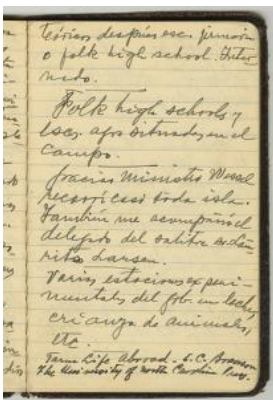 teóricos después esc. primaria
o folk high school. Inter
nado.
Folk high schools y
esc. agro situadas en el
campo.
Gracias Ministro Wessel
recorrí casi toda isla.
También me acompañó el
delegado del salitre
Larsen.
Varias estaciones experi-
mentales del gob. en leche,
crianza de animales,
etc.
Farm Life Abroad - E.C. Branson
The University of North Carolina Press.